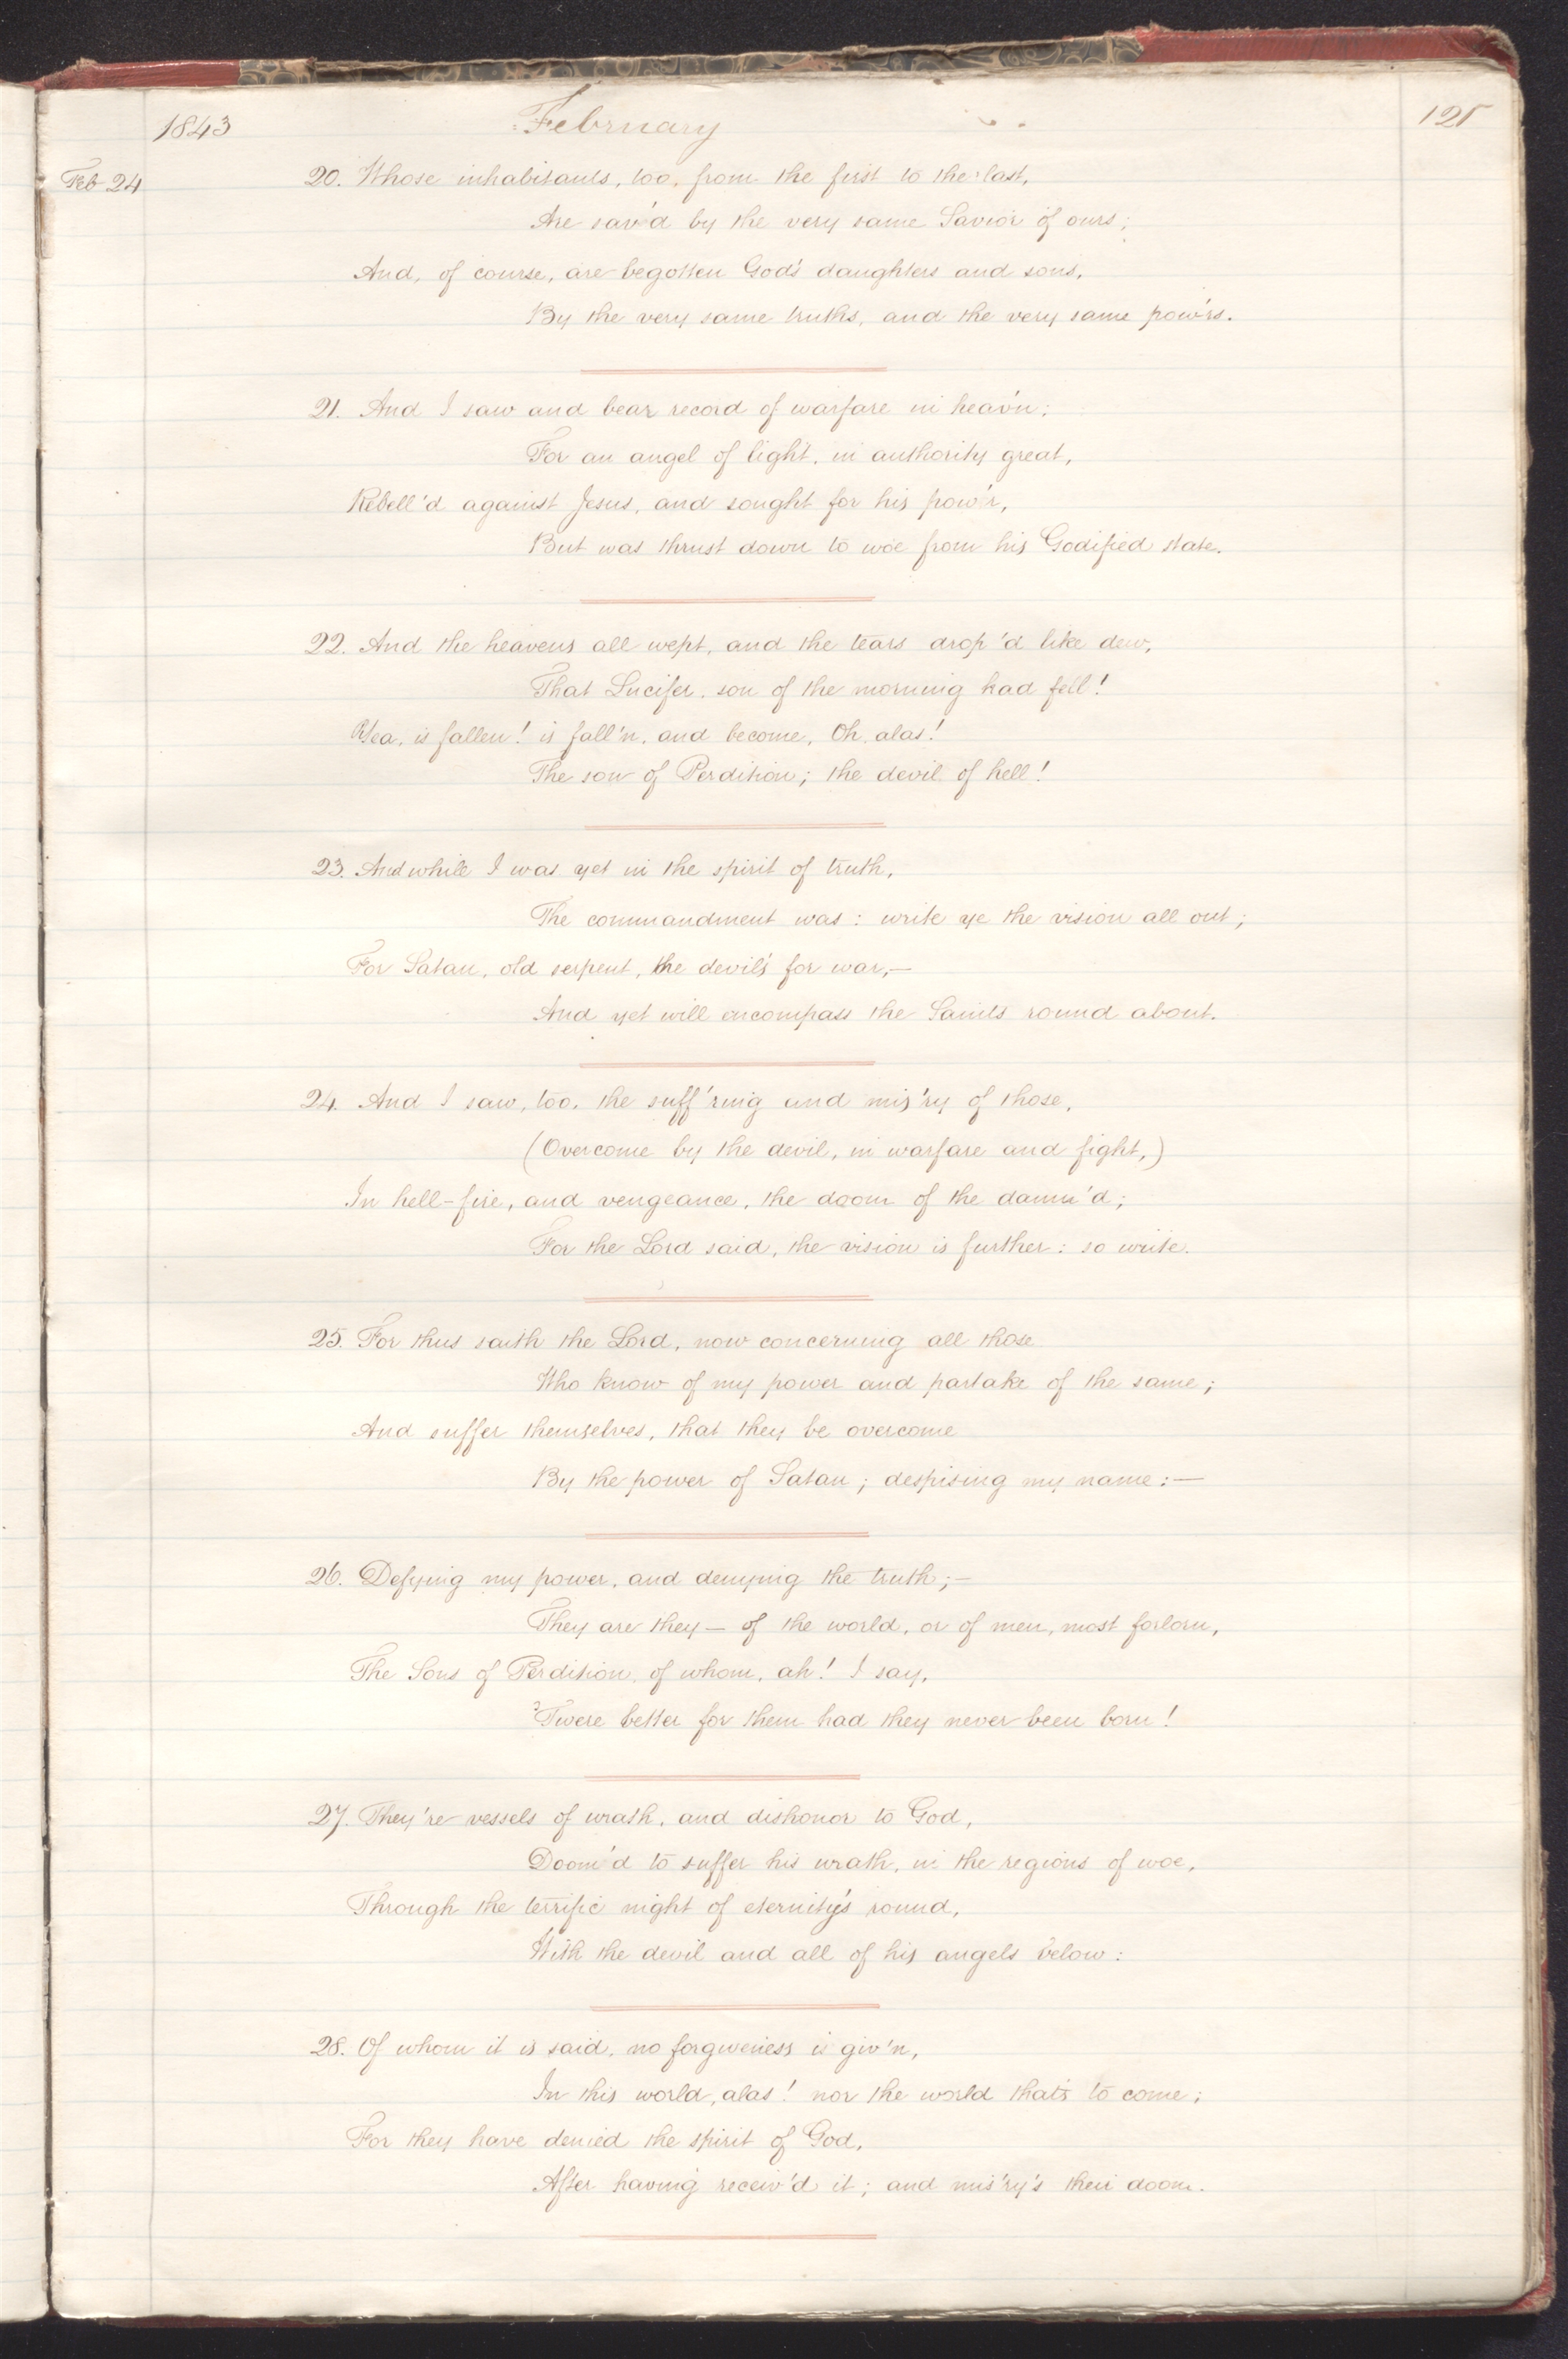 1843 February 125
Feb 24 20. Whose inhabitants, too, from the first to the last,
Are sav'd by the very same Savior of ours;
And, of course, are begotten God's daughters and sons,
By the very same truths, and the very same pow'rs.
21. And I saw and bear record of warfare in heav'n;
For an angel of light, in authority great,
Rebell'd against Jesus, and sought for his pow'r,
But was thrust down to woe from his Godified state.
22. And the heavens all wept, and the tears drop'd like dew,
That Lucifer, son of the morning had fell!
Yea, is fallen! is fall'n, and become, Oh, alas!
The son of Perdition; the devil of hell!
23. And while I was yet in the spirit of truth,
The commandment was: write ye the vision all out;
For Satan, old serpent, the devil's for war,—
And yet will encompass the Saints round about.
24. And I saw, too, the suff'ring and mis'ry of those,
(Overcome by the devil, in warfare and fight,)
In hell-fire, and vengeance, the doom of the damn'd;
For the Lord said, the vision is further: so write.
25. For thus saith the Lord, now concerning all those
Who know of my power and partake of the same;
And suffer themselves, that they be overcome
By the power of Satan; despising my name:—
26. Defying my power, and denying the truth;—
They are they— of the world, or of men, most forlorn,
The Sons of Perdition, of whom, ah! I say,
'Twere better for them had they never been born!
27. They're vessels of wrath, and dishonor to God,
Doom'd to suffer his wrath, in the regions of woe,
Through the terrific night of eternity's round,
With the devil and all of his angels below:
28. Of whom it is said, no forgiveness is giv'n,
In this world, alas! nor the world that's to come;
For they have denied the spirit of God,
After having receiv'd it; and mis'ry's their doom.